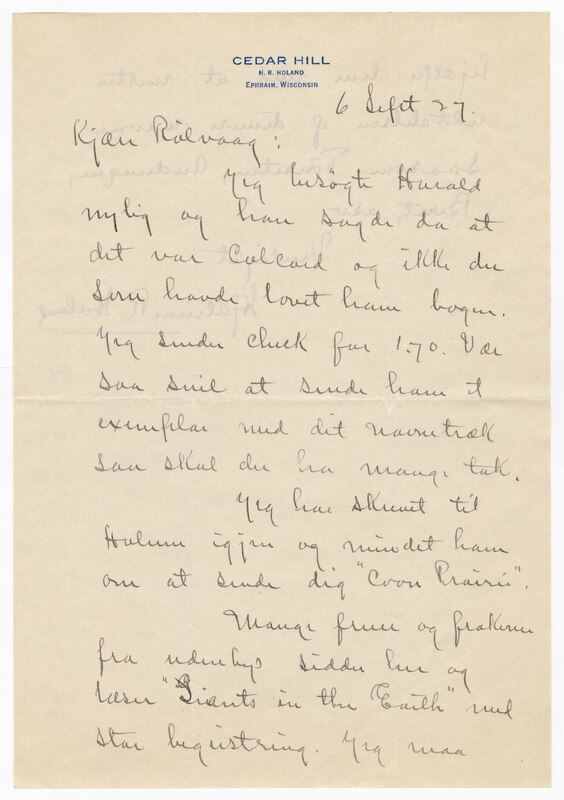 CEDAR HILL
H. R. HOLAND
EPHRAIM, WISCONSIN
6 Sept 27.
Kjære Rölvaag:
Jeg besøgte Harald
nylig og han sagde da at
det var Colcord og ikke du
som havde lovet ham bogen.
Jeg sender check for 1.70. Vær
saa snil at sende ham et
exemplar med dit navnetræk
saa skal du ha mange tak.
Jeg har skrevet til
igjen og mindet ham
om at sende dig "Coon Prairie".
Mange fruer og frøkener
fra udenbys sidder her og
læser "Giants in the Earth" med
stor begeistring. Jeg maa